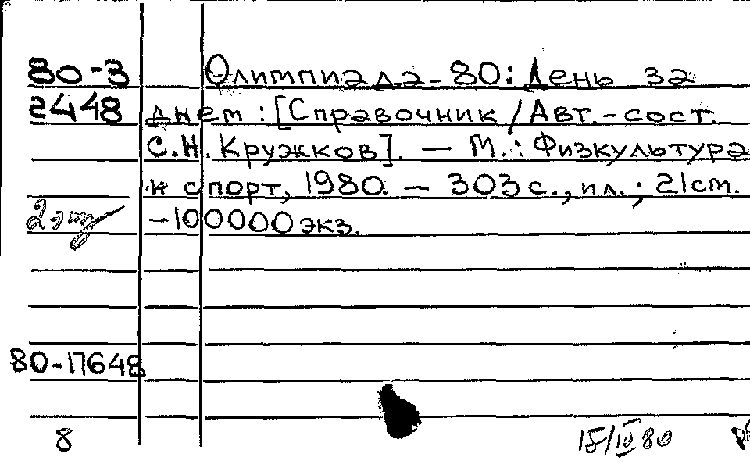 80-3 Олимпиада-80: День за
2448 днем : [Справочник / Авт.-сост.
С.Н. Кружков]. — М.: Физкультура
и спорт, 1980. — 303 с., ил.; 21 ст.
2 экз
-100000 экз.
80-17648
8
15/IV 80